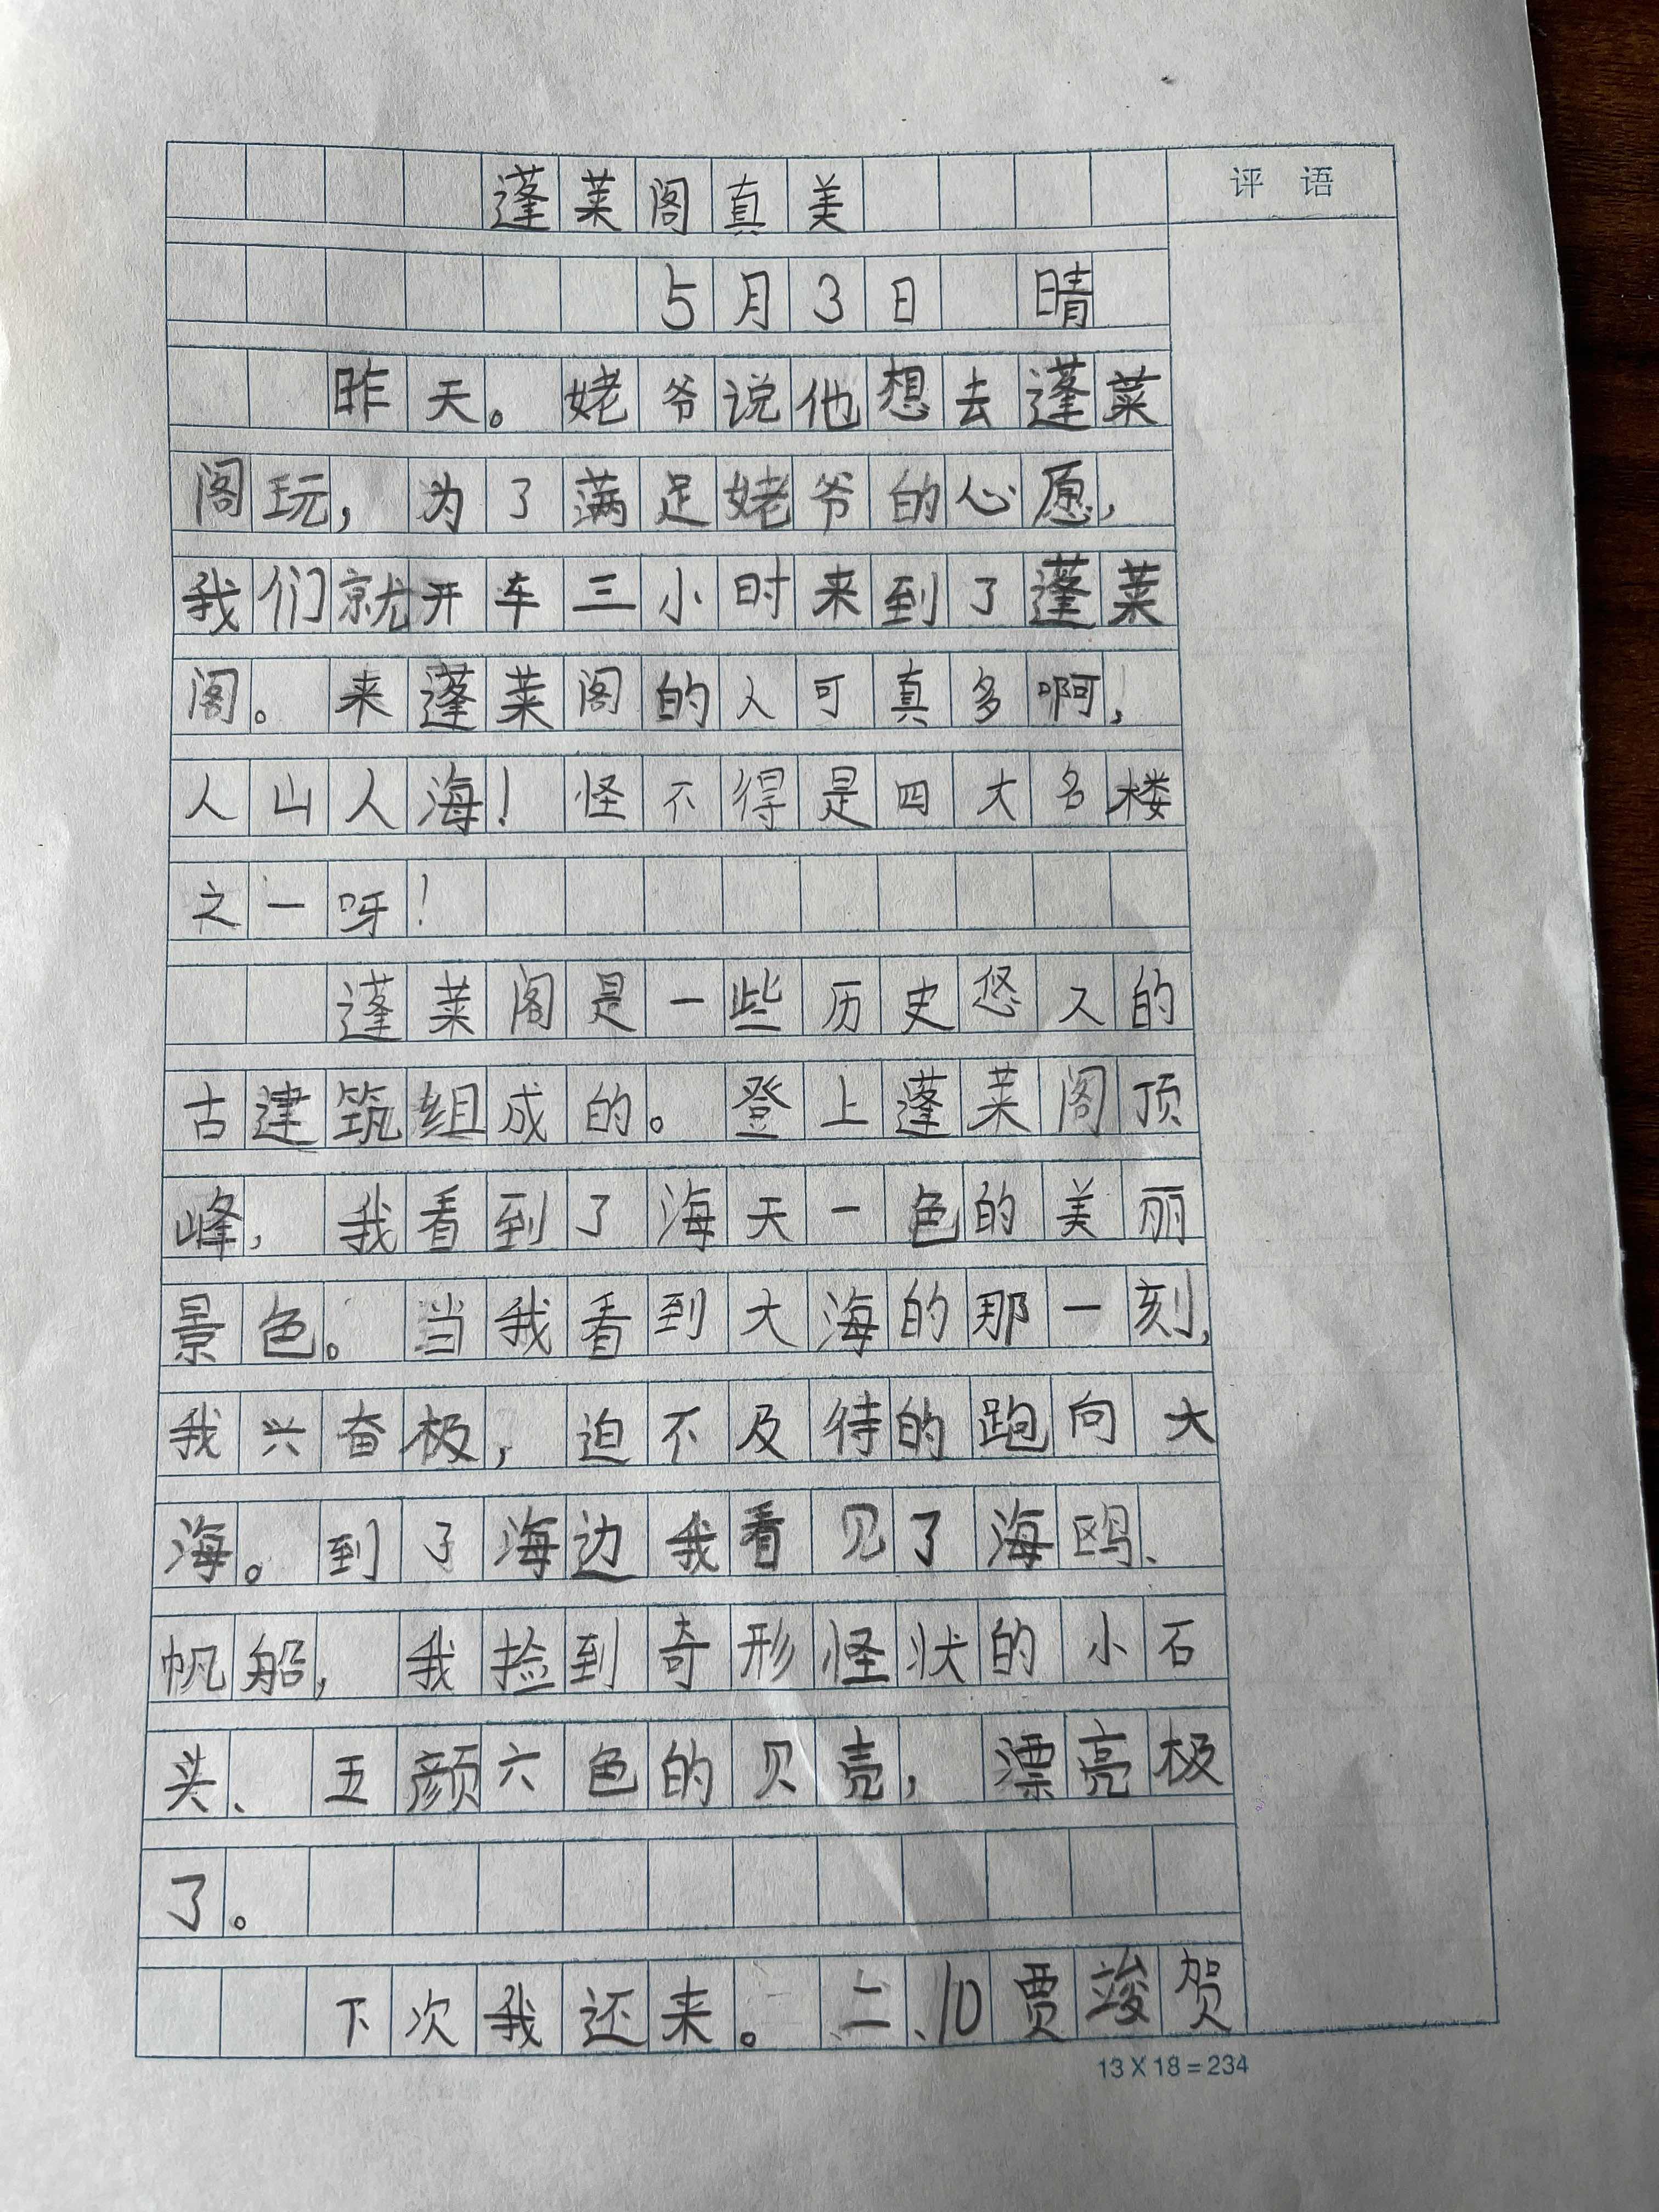 蓬莱阁真美
评语
5月3日 晴
昨天。姥爷说他想去蓬莱
阁玩，为了满足姥爷的心愿，
我们就开车三小时来到了蓬莱
阁。来蓬莱阁的人可真多啊，
人山人海！怪不得是四大名楼
之一呀！
蓬莱阁是一些历史悠久的
古建筑组成的。登上蓬莱阁顶
峰，我看到了海天一色的美丽
景色。当我看到大海的那一刻，
我兴奋极，迫不及待的跑向大
海。到了海边我看见了海鸥、
帆船，我捡到奇形怪状的小石
头、五颜六色的贝壳，漂亮极
了。
下次我还来。二、10贾竣贺
13X18=234